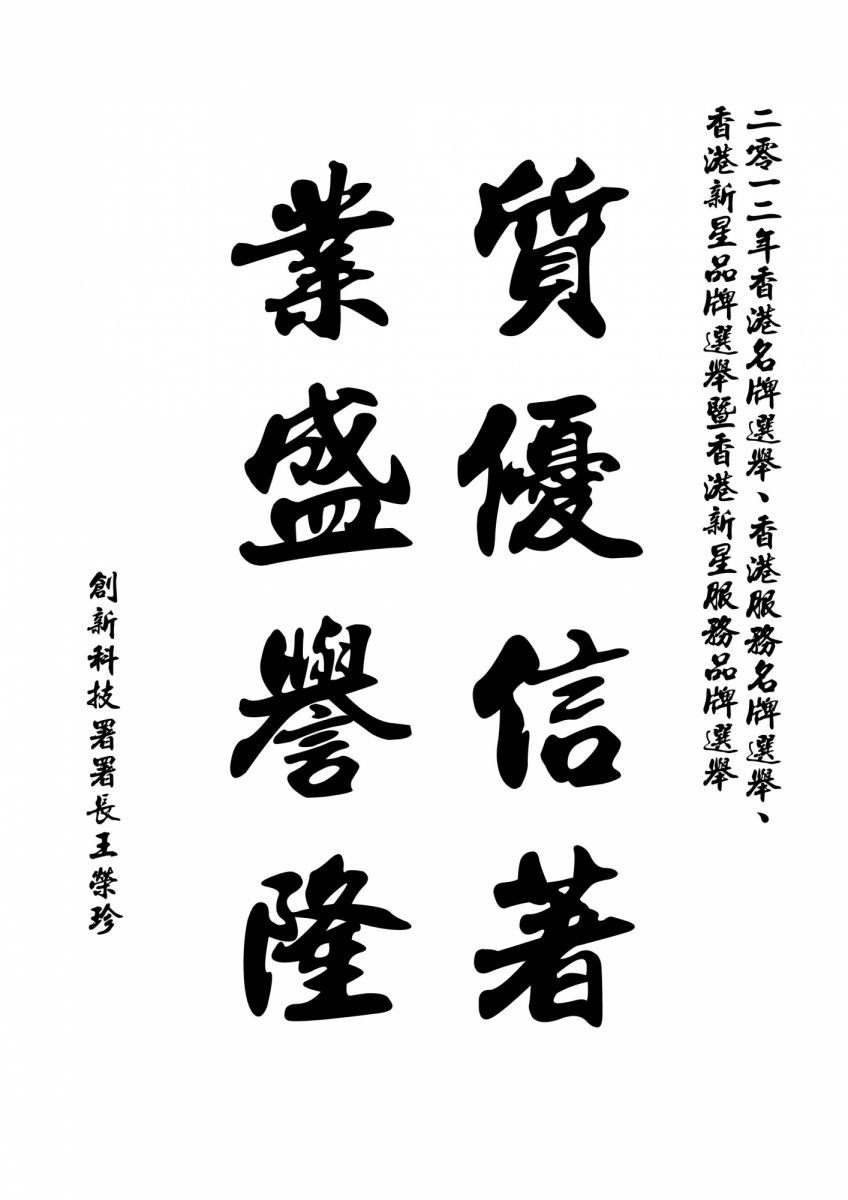 二零一二年香港名牌選舉、香港服務名牌選舉、
香港新星品牌選舉暨香港新星服務品牌選舉
質優信著
業盛譽隆
創新科技署署長王榮珍